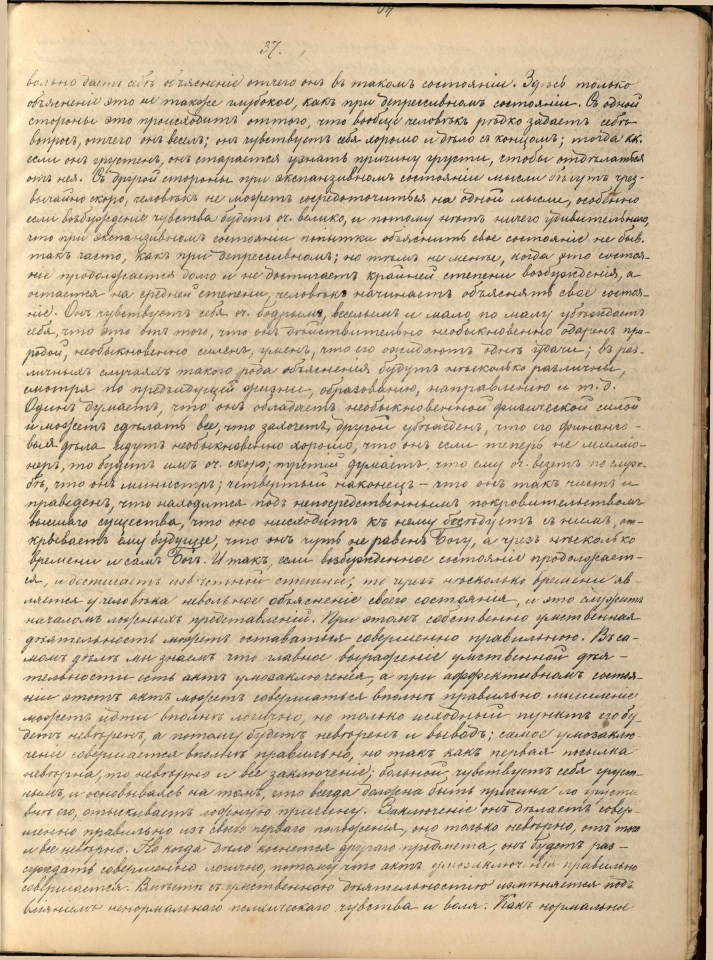 37.
вольно даетъ себѣ объясненіе отчего онъ въ такомъ состояніи. Здѣсь только
объясненіе это не такое глубокое, какъ при депрессивномъ состояніи. Съ одной
стороны это происходитъ оттого, что вообще человѣкъ рѣдко задаетъ себѣ
вопросъ, отчего онъ веселъ; онъ чувствуетъ себя хорошо и дѣло съ концомъ; тогда кк.
если онъ грустенъ, онъ старается узнать причину грусти, чтобы отдѣлаться
отъ нея. Съ другой стороны при экспанзивномъ состояніи мысли бѣгутъ чрез-
вычайно скоро, человѣкъ не можетъ сосредоточиться на одной мысли, особенно
если возбужденіе чувства будетъ оч. велико, и потому нѣтъ ничего удивительнаго,
что при экспанзивномъ состояніи попытки объяснить свое состояніе не быв.
такъ часто, какъ при депрессивномъ; но тѣмъ не менѣе, когда это состоя-
ніе продолжается долго и не достигаетъ крайней степени возбужденія, а
остается на средней степени, человѣкъ начинаетъ объяснять свое состоя-
ніе. Онъ чувствуетъ себя оч. бодрымъ, веселымъ и мало, по малу убѣждаетъ
себя, что это отъ того, что онъ дѣйствительно необыкновенно одаренъ при-
родой, необыкновенно силенъ, уменъ, что его ожидаютъ однѣ удачи; въ раз-
личныхъ случаяхъ такого рода объясненія будутъ нѣсколько различны,
смотря по предъидущей жизни, образованію, направленію и т. д.
Одинъ думаетъ, что онъ обладаетъ необыкновенной физической силой
и можетъ сдѣлать все, что захочетъ, другой убѣжденъ, что его финансо-
выя дѣла идутъ необыкновенно хорошо, что онъ если теперь не милліо-
неръ, то будетъ имъ оч. скоро; третій думаетъ, что ему оч. везетъ по служ-
бѣ, что онъ министръ; четвертый наконецъ – что онъ такъ чистъ и
праведенъ, что находится подъ непосредственнымъ покровительствомъ
высшаго существа, что оно нисходитъ къ нему бесѣдуетъ съ нимъ, от-
крываетъ ему будущее, что онъ чуть не равенъ Богу, а чрезъ нѣсколько
времени и самъ Богъ. Итакъ, если возбужденное состояніе продолжает-
ся, и достигаетъ извѣстной степени, то чрезъ нѣсколько времени яв-
ляется у человѣка невольное объясненіе своего состоянія, и это служитъ
началомъ ложныхъ представленій. При этомъ собственно умственная
дѣятельность можетъ оставаться совершенно правильною. Въ са-
момъ дѣлѣ мы знаемъ что главное выраженіе умственной дѣя-
тельности есть актъ умозаключенія, а при аффективномъ состоя-
ніи этотъ актъ можетъ совершаться вполнѣ правильно мышленіе
можетъ идти вполнѣ логично, но только исходный пунктъ его бу-
детъ невѣренъ, а потому будетъ невѣренъ и выводъ; самое умозаклю-
ченіе совершается вполнѣ правильно, но такъ какъ первая посылка
невѣрна, то невѣрно и все заключеніе; больной, чувствуетъ себя груст-
нымъ, и основываясь на томъ, что всегда должна быть причина
его, отыскиваетъ ложную причину. Заключеніе онъ дѣлаетъ совер-
шенно правильно изъ своего перваго положенія, оно только невѣрно, отъ того
и все невѣрно. Но когда дѣло коснется другаго предмета, онъ будетъ раз-
суждать совершенно логично, потому что актъ умозаключенія правильно
совершается. Вмѣстѣ съ умственною дѣятельностію измѣняется подъ
вліяніемъ ненормальнаго психическаго чувства и воля. Какъ нормальное